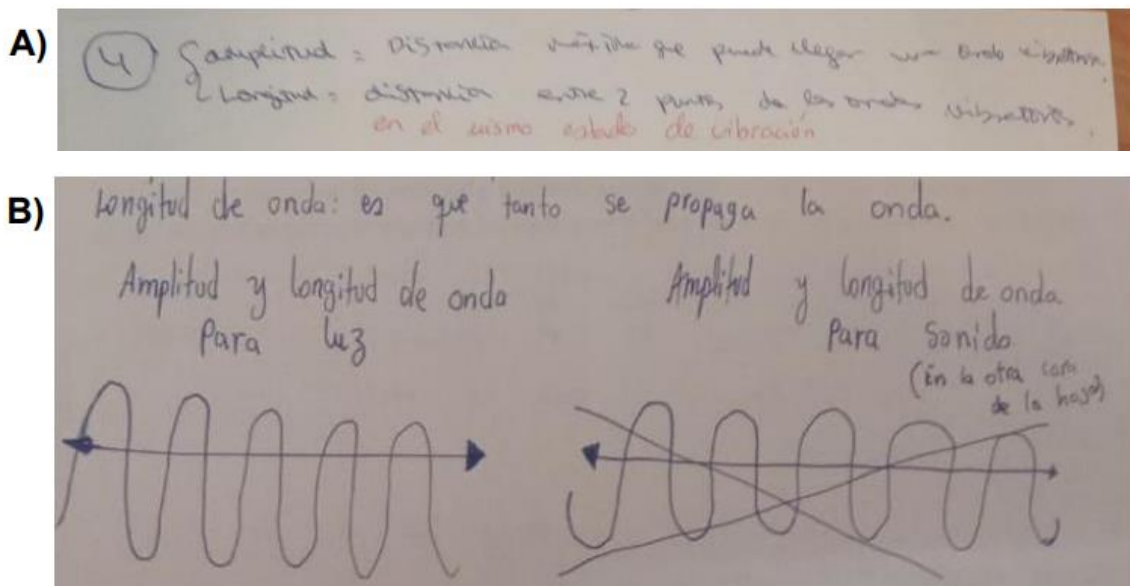 A)
4 { amplitud = Distancia máxima que puede llegar una onda vibratoria.
Longitud = distancia entre 2 puntos de las ondas vibratorias.
en el mismo estado de vibración
B)
Longitud de onda: es que tanto se propaga la onda.
Amplitud y longitud de onda
Para luz
Amplitud y longitud de onda
Para Sonido
(En la otra cara
de la hoja)